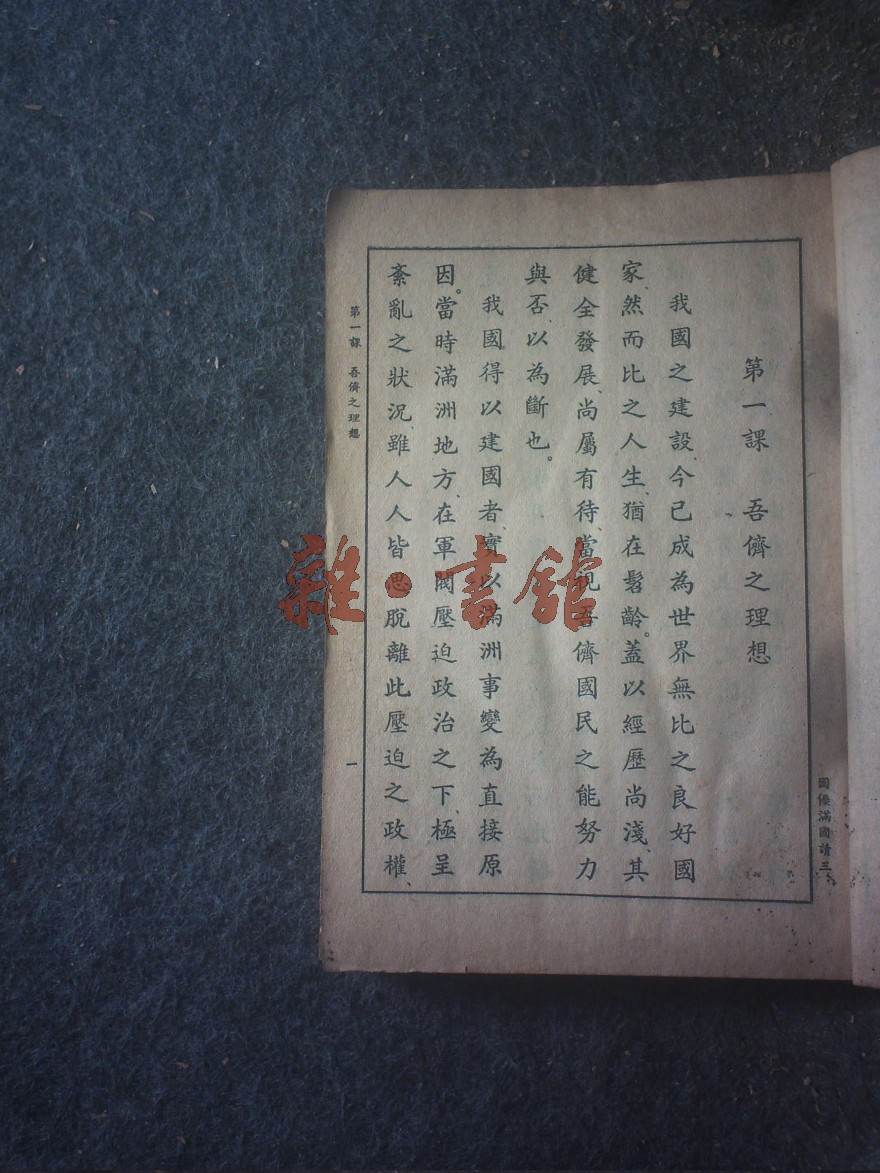 第一課　吾儕之理想
我國之建設、今已成為世界無比之良好國
家、然而比之人生、猶在髫齡。蓋以經歷尚淺、其
健全發展、尚屬有待、當視吾儕國民之能努力
與否、以為斷也。
我國得以建國者、實以滿洲事變為直接原
因。當時滿洲地方、在軍閥壓迫政治之下、極呈
紊亂之狀況、雖人人皆思脫離此壓迫之政權、
第一課　吾儕之理想
一
國優滿國讀三
雜·書館